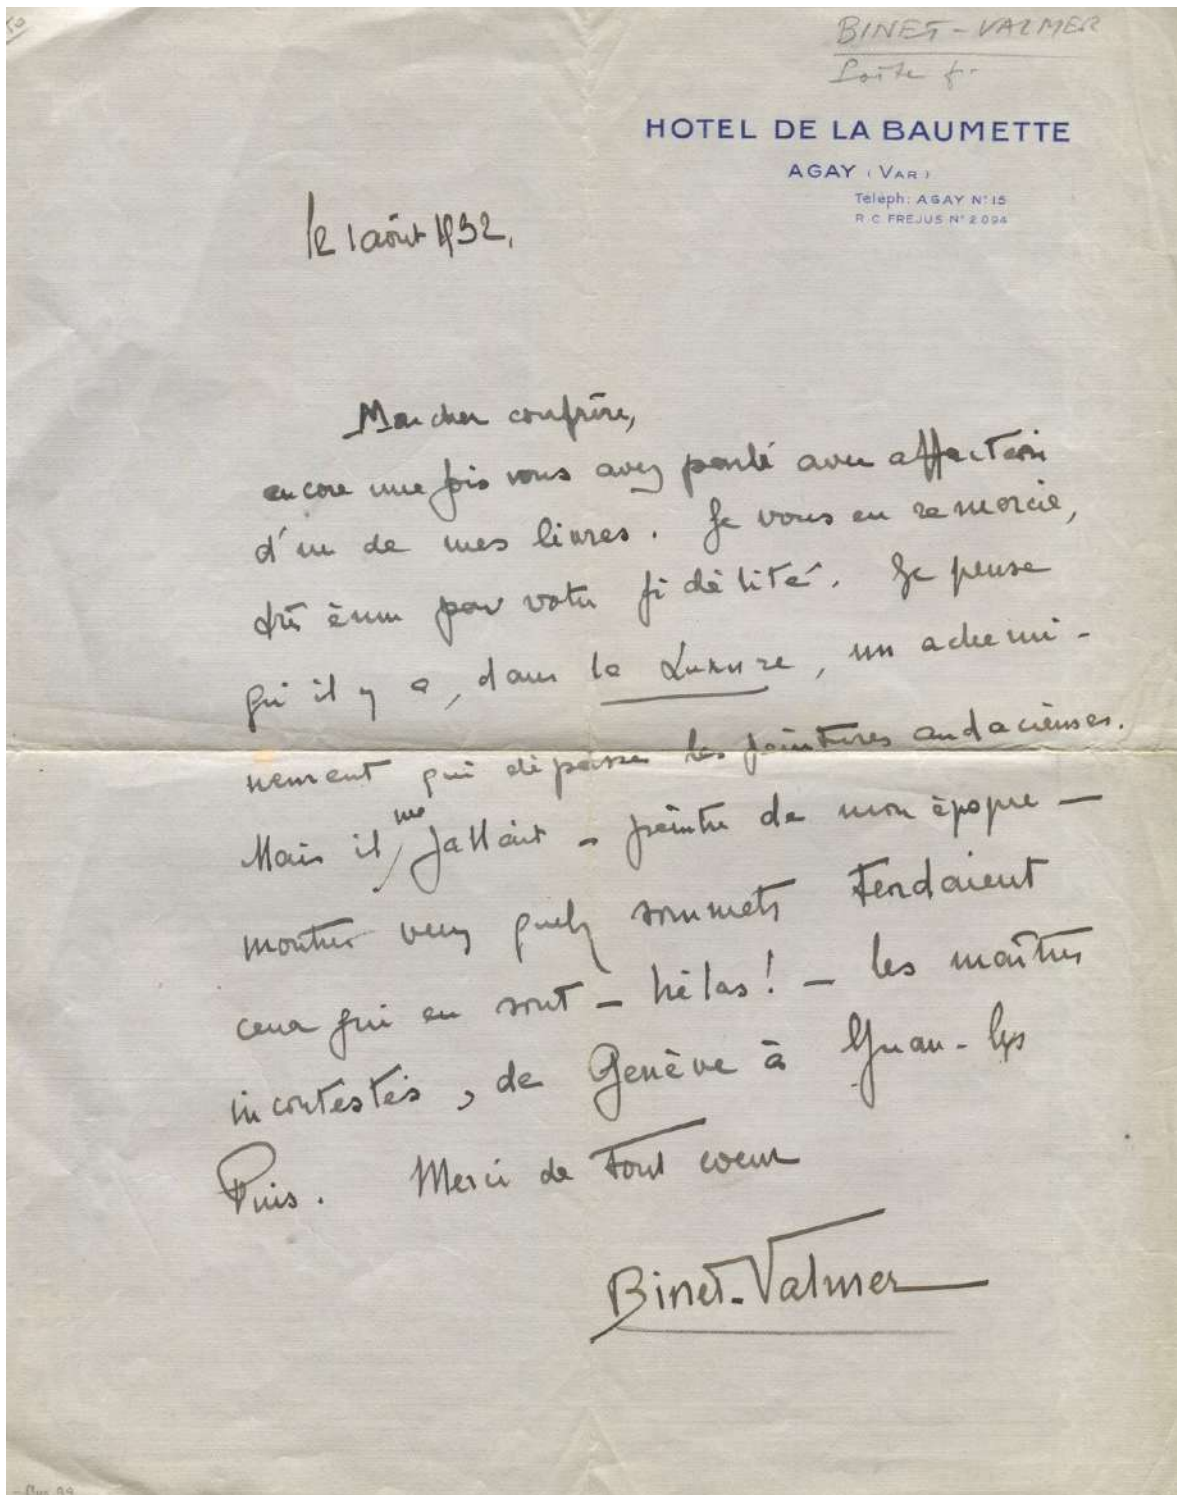 BINET-VALMER
HOTEL DE LA BAUMETTE
AGAY (VAR)
Téléph: AGAY N° 15
R.C. FREJUS N° 2094
le 1 août 1932,
Mon cher confrère,
encore une fois vous avez parlé avec affection
d'un de mes livres. Je vous en remercie,
très ému par votre fidélité. Je pense
qu'il y a, dans la Luxure, un achemi-
nement qui dépasse les peintures audacieuses.
Mais il me fallait – peintre de mon époque –
montrer vers quels sommets tendaient
ceux qui en sont – hélas! – les maîtres
incontestés, de Genève à Juan-les
Pins. Merci de tout cœur
Binet-Valmer